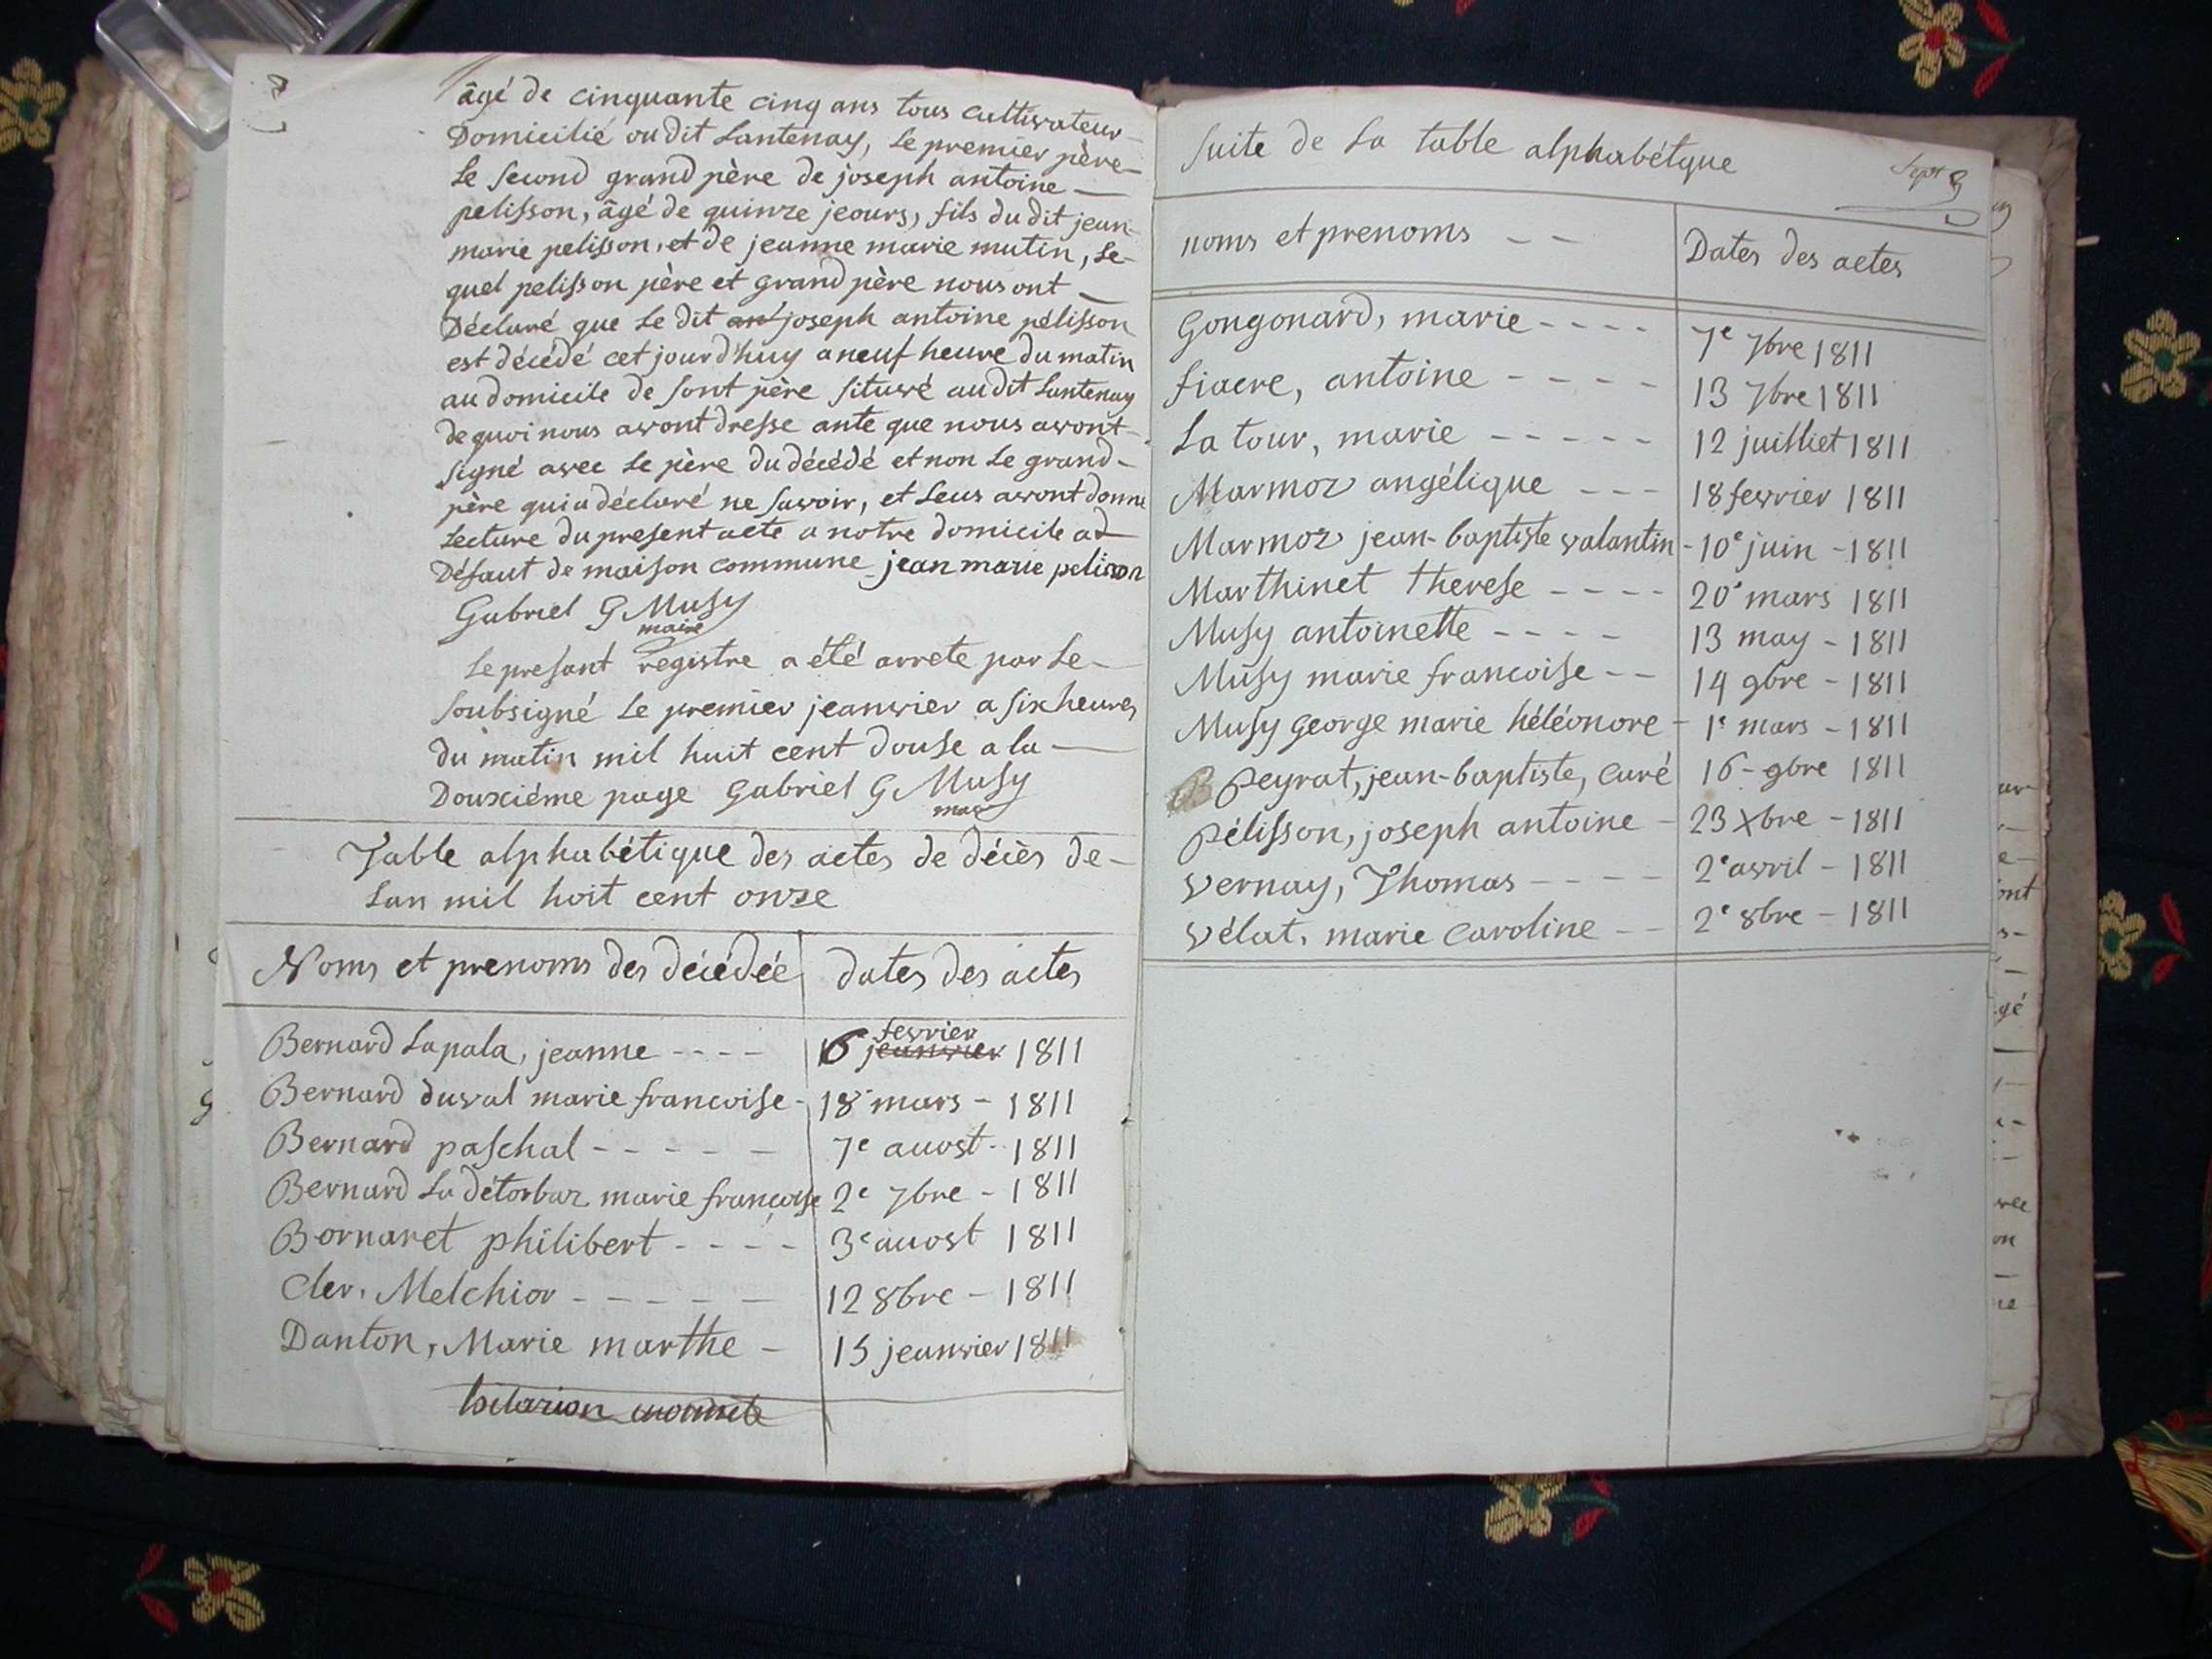 âgé de cinquante cinq ans tous cultivateur
Domicilié oudit Lantenay, le premier père
le second grand père de joseph antoine
pelisson, âgé de quinze jeours, fils du dit jean
marie pelisson, et de jeanne marie mutin, le-
quel pelisson père et grand père nous ont
Déclaré que le dit an joseph antoine pélisson
est décédé cet jourd'huy a neuf heure du matin
au domicile de sont père situvé audit Lantenay
de quoi nous avont dresse ante que nous avont
signé avec le père du décédé et non le grand-
père qui a déclaré ne savoir, et leus avont donne
Lecture du present acte a notre domicile ad
Défaut de maison commune jean marie pelison
Gabriel G Musy
maire
Le presant registre a été arrete par le
soubsigné le premier jeanvier a six heures
du matin mil huit cent douse a la
Douxciéme page Gabriel G Musy
Table alphabétique des actes de décès de
Lan mil hoit cent onze
Noms et prenoms des décédée dates des actes
Bernard Lapala, jeanne - - - - 6 fevrier jeanvier 1811
Bernard duval marie francoise - 18 mars - 1811
Bernard paschal - - - - - 7e auost - 1811
Bernard La détorbaz marie françoise 2e 7bre - 1811
Bornaret philibert - - - - 3e auost 1811
Cler, Melchior - - - - - 12 8bre - 1811
Danton, Marie marthe - 15 jeanvier 1811
hilarion
Suite de La table alphabétque
noms et prenoms - - Dates des actes
Gongonard, marie - - - - 7e 7bre 1811
fiacre, antoine - - - - 13 7bre 1811
La tour, marie - - - - - 12 juilliet 1811
Marmoz angélique - - - 18 fevrier 1811
Marmoz jean-baptiste valantin - 10e juin - 1811
Marthinet therese - - - - 20e mars 1811
Musy antoinette - - - - 13 may - 1811
Musy marie francoise - - 14 9bre - 1811
Musy george marie héléonore - 1e mars - 1811
Peyrat, jean-baptiste, Curé 16 - 9bre 1811
Pélisson, joseph antoine - 23 Xbre - 1811
Vernay, Thomas - - - - 2e avril - 1811
Vélat, marie Caroline - - 2e 8bre - 1811